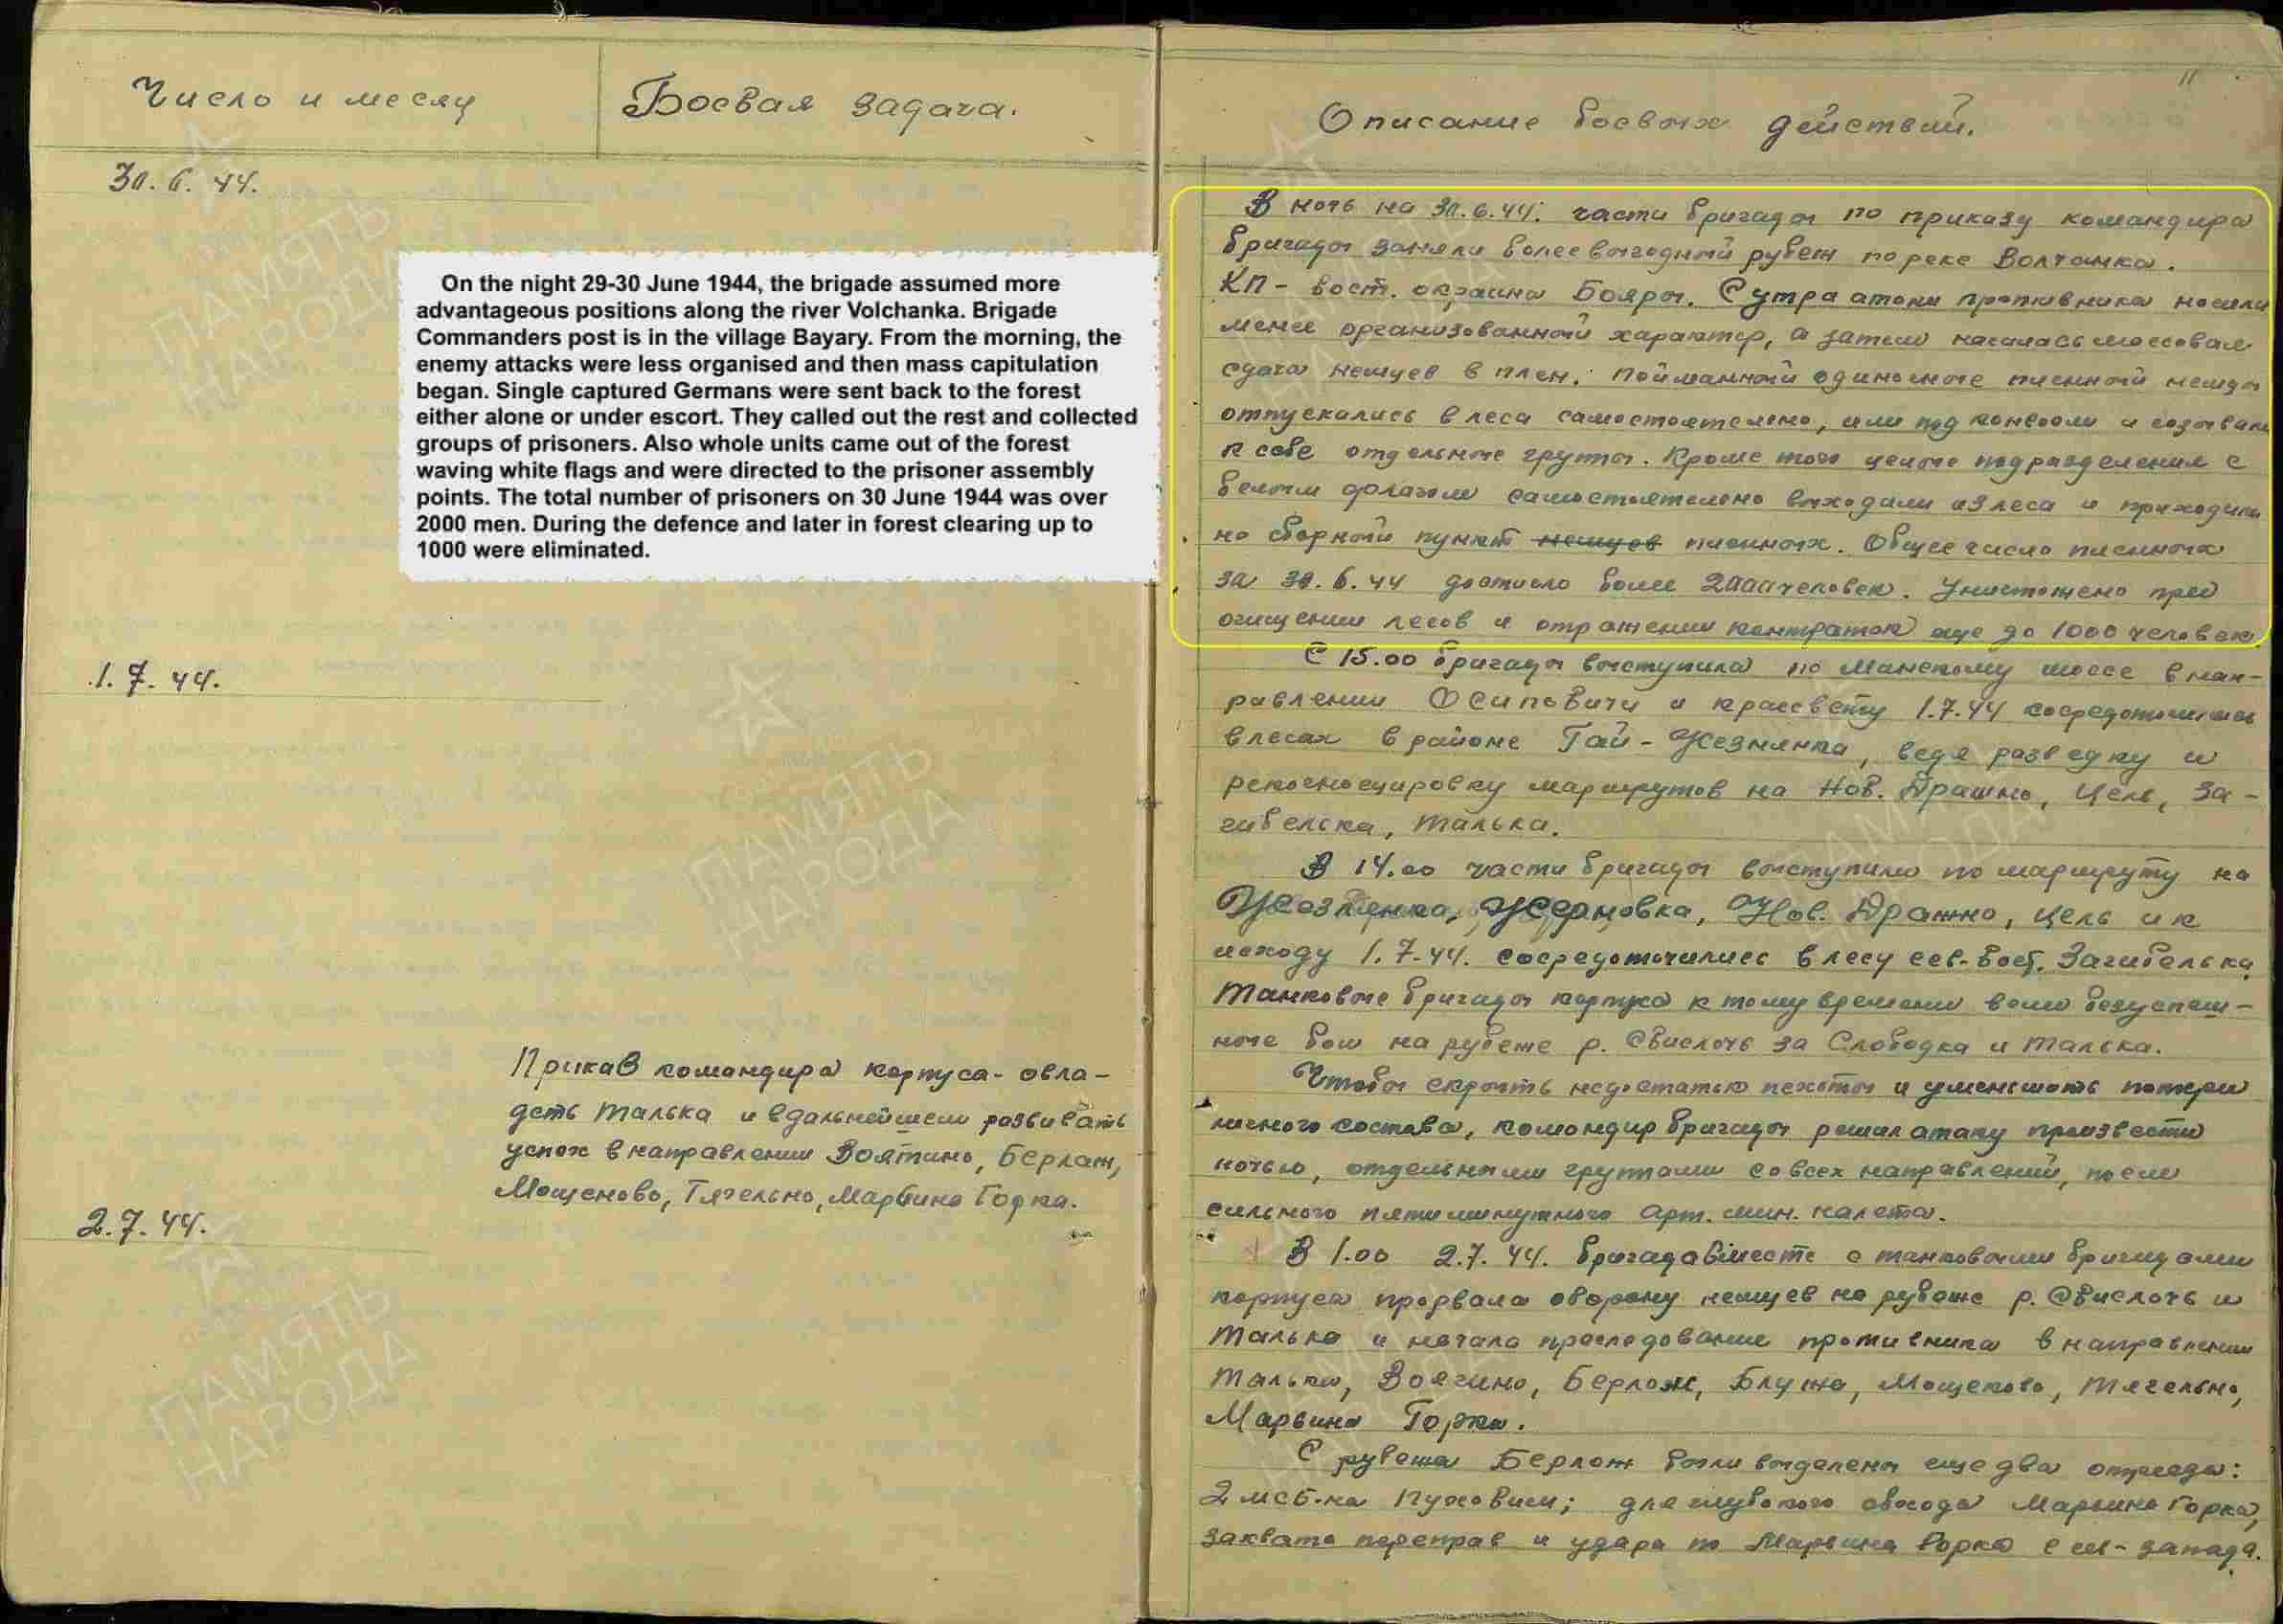 Число и месяц
Боевая задача.
30.6.44.
On the night 29-30 June 1944, the brigade assumed more
advantageous positions along the river Volchanka. Brigade
Commanders post is in the village Bayary. From the morning, the
enemy attacks were less organised and then mass capitulation
began. Single captured Germans were sent back to the forest
either alone or under escort. They called out the rest and collected
groups of prisoners. Also whole units came out of the forest
waving white flags and were directed to the prisoner assembly
points. The total number of prisoners on 30 June 1944 was over
2000 men. During the defence and later in forest clearing up to
1000 were eliminated.
1.7.44.
Приказ командира корпуса - овла-
деть Талька и в дальнейшем развивать
успех в направлении Воятино, Берлож,
Мощеново, Тягельно, Марьина Горка.
2.7.44.
11
Описание боевых действий.
В ночь на 30.6.44. части бригады по приказу командира
бригады заняли более выгодный рубеж по реке Волчанка.
КП - вост. окраина Бояры. С утра атаки противника носили
менее организованный характер, а затем началась массовая
сдача немцев в плен. Пойманный одиночные пленный немцы
отпускались в леса самостоятельно, или под конвоем и созывали
к себе отдельные группы. Кроме того целые подразделения с
белым флагом самостоятельно выходили из леса и приходили
на сборный пункт немцев пленных. Общее число пленных
за 30.6.44 достигло более 2000 человек. Уничтожено при
очищении лесов и отражении контратак еще до 1000 человек
С 15.00 бригада выступила по Минскому шоссе в нап-
равлении Осиповичи и к рассвету 1.7.44 сосредоточились
в лесах в районе Гай-Жезнянка, ведя разведку и
рекогносцировку маршрутов на Нов. Дражно, Цель, За-
гибелька, Талька.
В 14.00 части бригады выступили по маршруту на
Жезлянка, Жерновка, Нов. Дражно, Цель и к
исходу 1.7.44. сосредоточились в лесу сев-вост. Загибелька
Танковые бригады корпуса к тому времени вели безуспеш-
ные бои на рубеже р. Свислочь за Слободка и Талька.
Чтобы скрыть недостатью пехоты и уменьшить потери
личного состава, командир бригады решил атаку произвести
ночью, отдельными группами со всех направлений, после
сильного пятиминутного арт. мин. налета.
В 1.00 2.7.44. бригада вместе с танковыми бригадами
корпуса прорвала оборону немцев на рубеже р. Свислочь и
Талька и начала преследование противника в направлении
Тальки, Воятино, Берлож, Блужа, Мощеново, Тягельно,
Марьина Горка.
С рубежа Берлож были выделены еще два отряда:
2 мсб-на Пуховичи; для глубокого обхода Марьина Горка,
захвата переправ и удара по Марьина Горка с сев-запада.
ПАМЯТЬ
НАРОДА
ПАМЯТЬ
НАРОДА
ПАМЯТЬ
НАРОДА